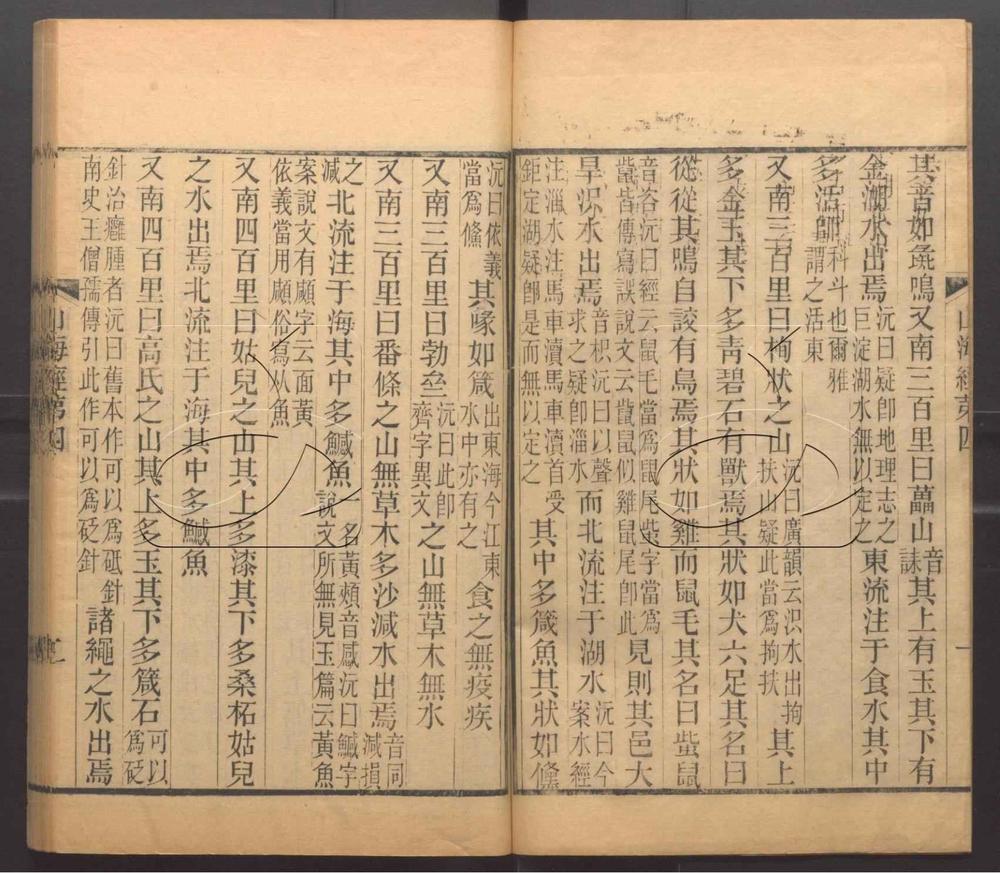 其音如彘鳴又南三百里曰藟山音誄其上有玉其下有
金湖水出焉沅曰疑卽地理志之巨淀湖水無以定之東流注于食水其中
多活師科斗也爾雅謂之活東
又南三百里曰栒狀之山沅曰廣韻云汦水出拘扶山疑此當爲拘扶其上
多金玉其下多靑碧石有獸焉其狀如犬六足其名曰
從從其鳴自詨有鳥焉其狀如雞而鼠毛其名曰蚩鼠
音咨沅曰經云鼠毛當爲鼠尾柴字當爲䶅皆傳寫誤說文云䶅鼠似雞鼠尾卽此見則其邑大
旱汦水出焉音枳沅曰以聲求之疑卽淄水而北流注于湖水沅曰今案水經
注淄水注馬車瀆馬車瀆首受鉅定湖疑卽是而無以定之其中多箴魚其狀如儵
沅曰依義當爲鯈其喙如箴出東海今江東水中亦有之食之無疫疾
又南三百里曰勃垒沅曰此卽齊字異文之山無草木無水
又南三百里曰番條之山無草木多沙減水出焉音同減損
之減北流注于海其中多鱤魚一名黃頰音感沅曰鱤字說文所無見玉篇云黃魚
案說文有顑字云面黃依義當用顑俗寫从魚
又南四百里曰姑兒之山其上多漆其下多桑柘姑兒
之水出焉北流注于海其中多鱤魚
又南四百里曰高氏之山其上多玉其下多箴石可以爲砭
針治癰腫者沅曰舊本作可以爲砥針南史王僧孺傳引此作可以爲砭針諸繩之水出焉
山海經第四
山海經第四
一